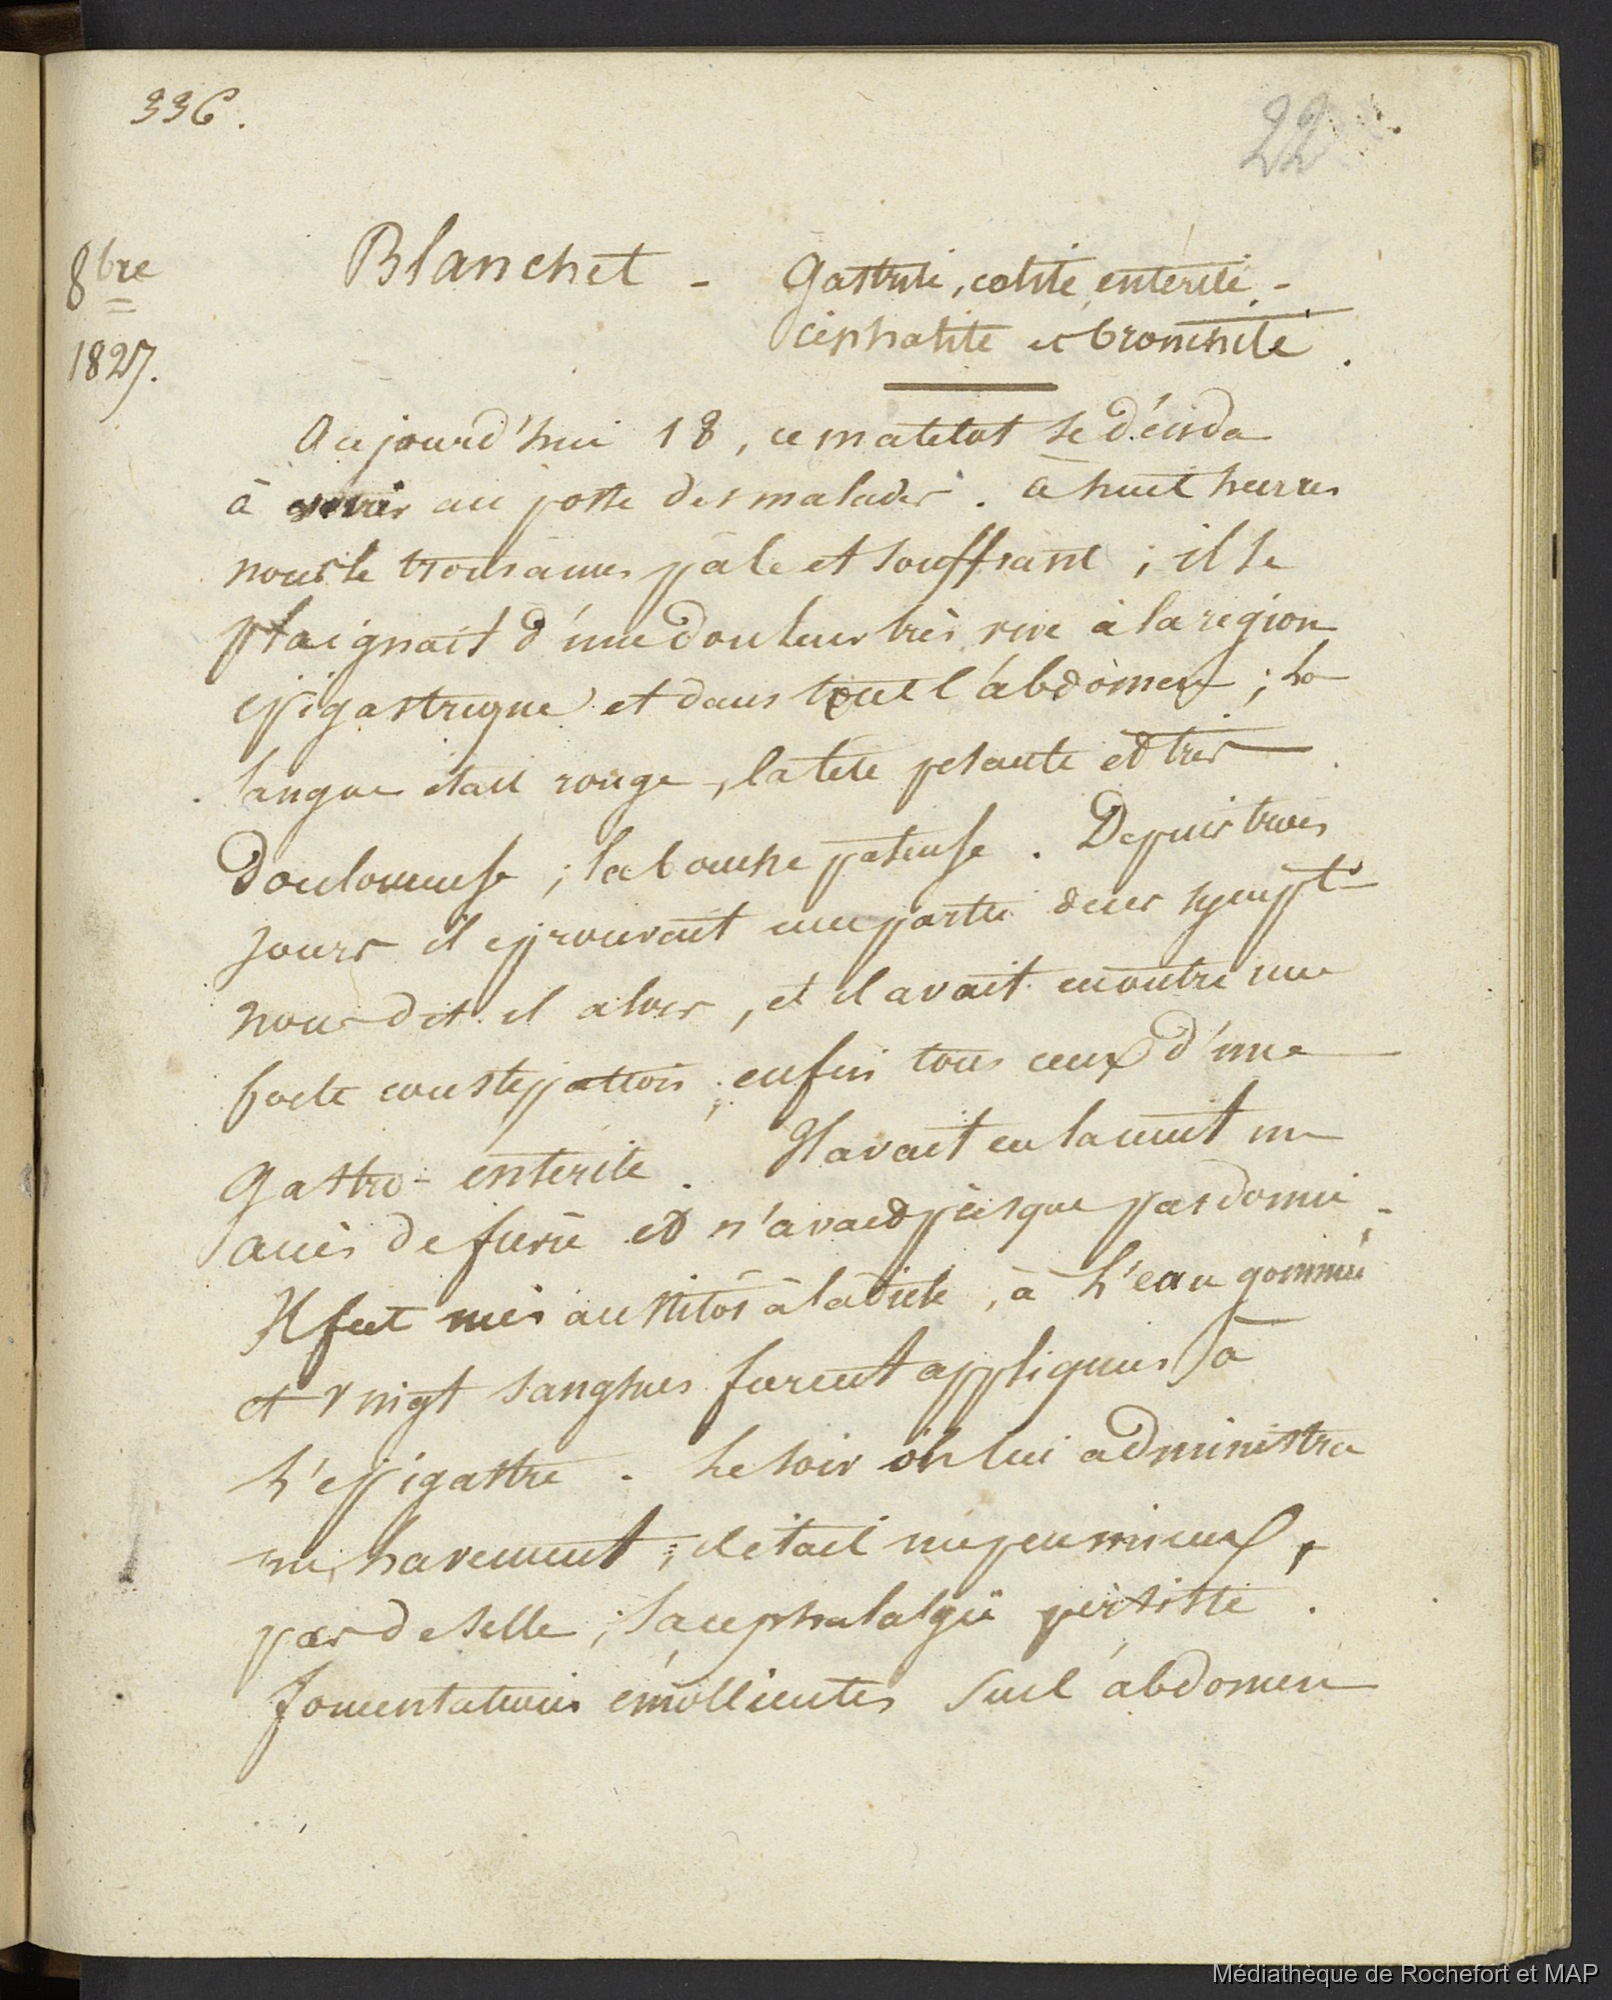 336.
22
8bre
1827.
Blanchet - Gastrite, colite, entérite, -
céphalite et bronchite.
Aujourd'hui 18, ce matelot se décida
à venir au poste des malades. à huit heures
nous le trouvâmes pâle et souffrant ; il se
plaignait d'une douleur très vive à la région
épigastrique et dans tout l'abdomen ; la
langue était rouge, la tête pesante et très
Douloureuse ; la bouche pateuse. Depuis trois
jours il eprouvait une partie de ces sympt-
nous dit il alors, et il avait en outre une
forte constipation ; enfin tous ceux d'une
gastro-entérite. Il avait eu la nuit un
accès de fievre et n'avait presque pas dormi.
Il fut mis aussitôt à la diète, à L'eau gommée
et vingt sangsues furent appliquées à
L'épigastre. Le soir on lui administra
un Lavement ; il était un peu mieux,
pas de selle ; la cephalalgie persiste.
fomentations émollientes sur l'abdomen
Médiathèque de Rochefort et MAP